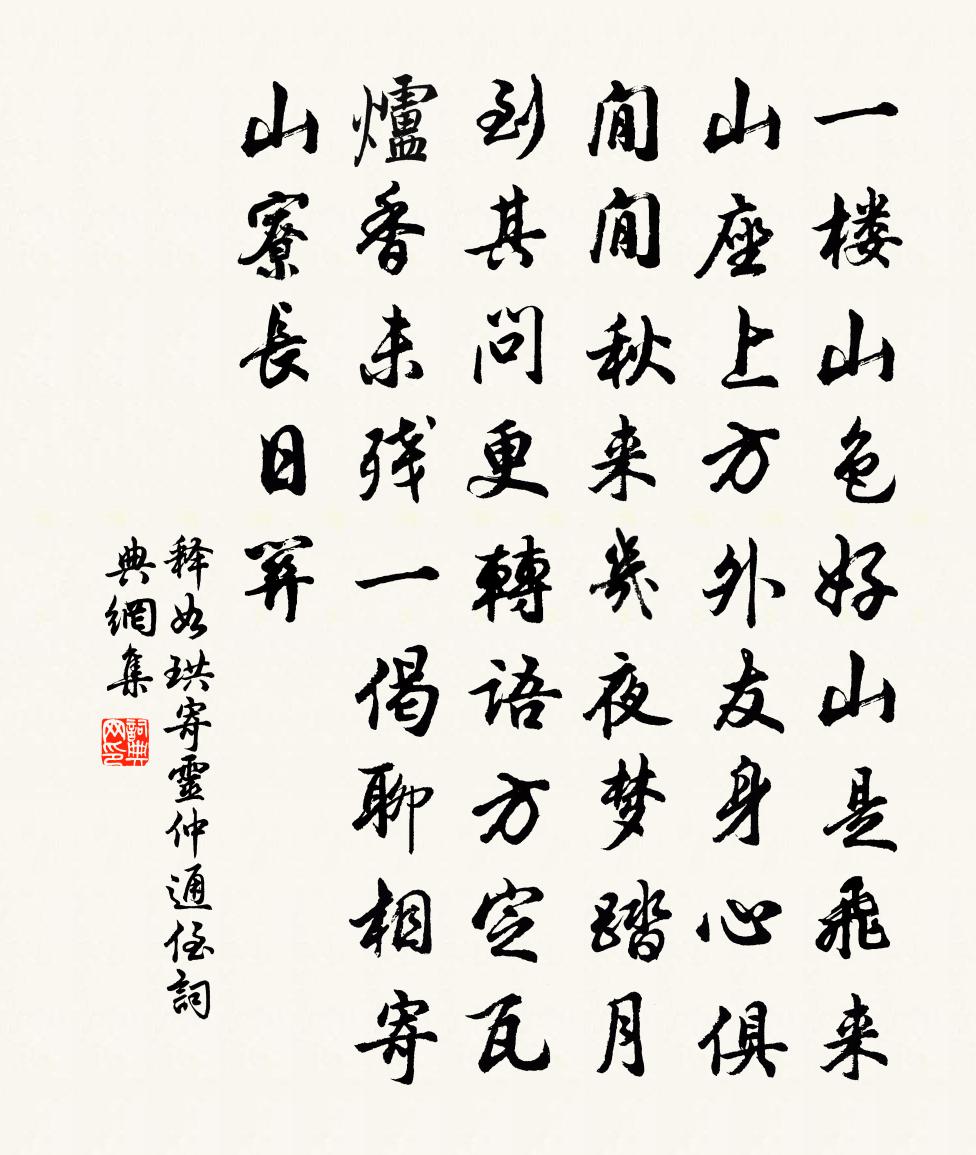 一楼山色好山是飛来
山座上方外友身心俱
閒閒秋来幾夜梦踏月
到其問更轉語方定瓦
爐香未残一偈聊相寄
山寮長日關
释如珙寄靈仲通侄詞
典網集
詞典網印